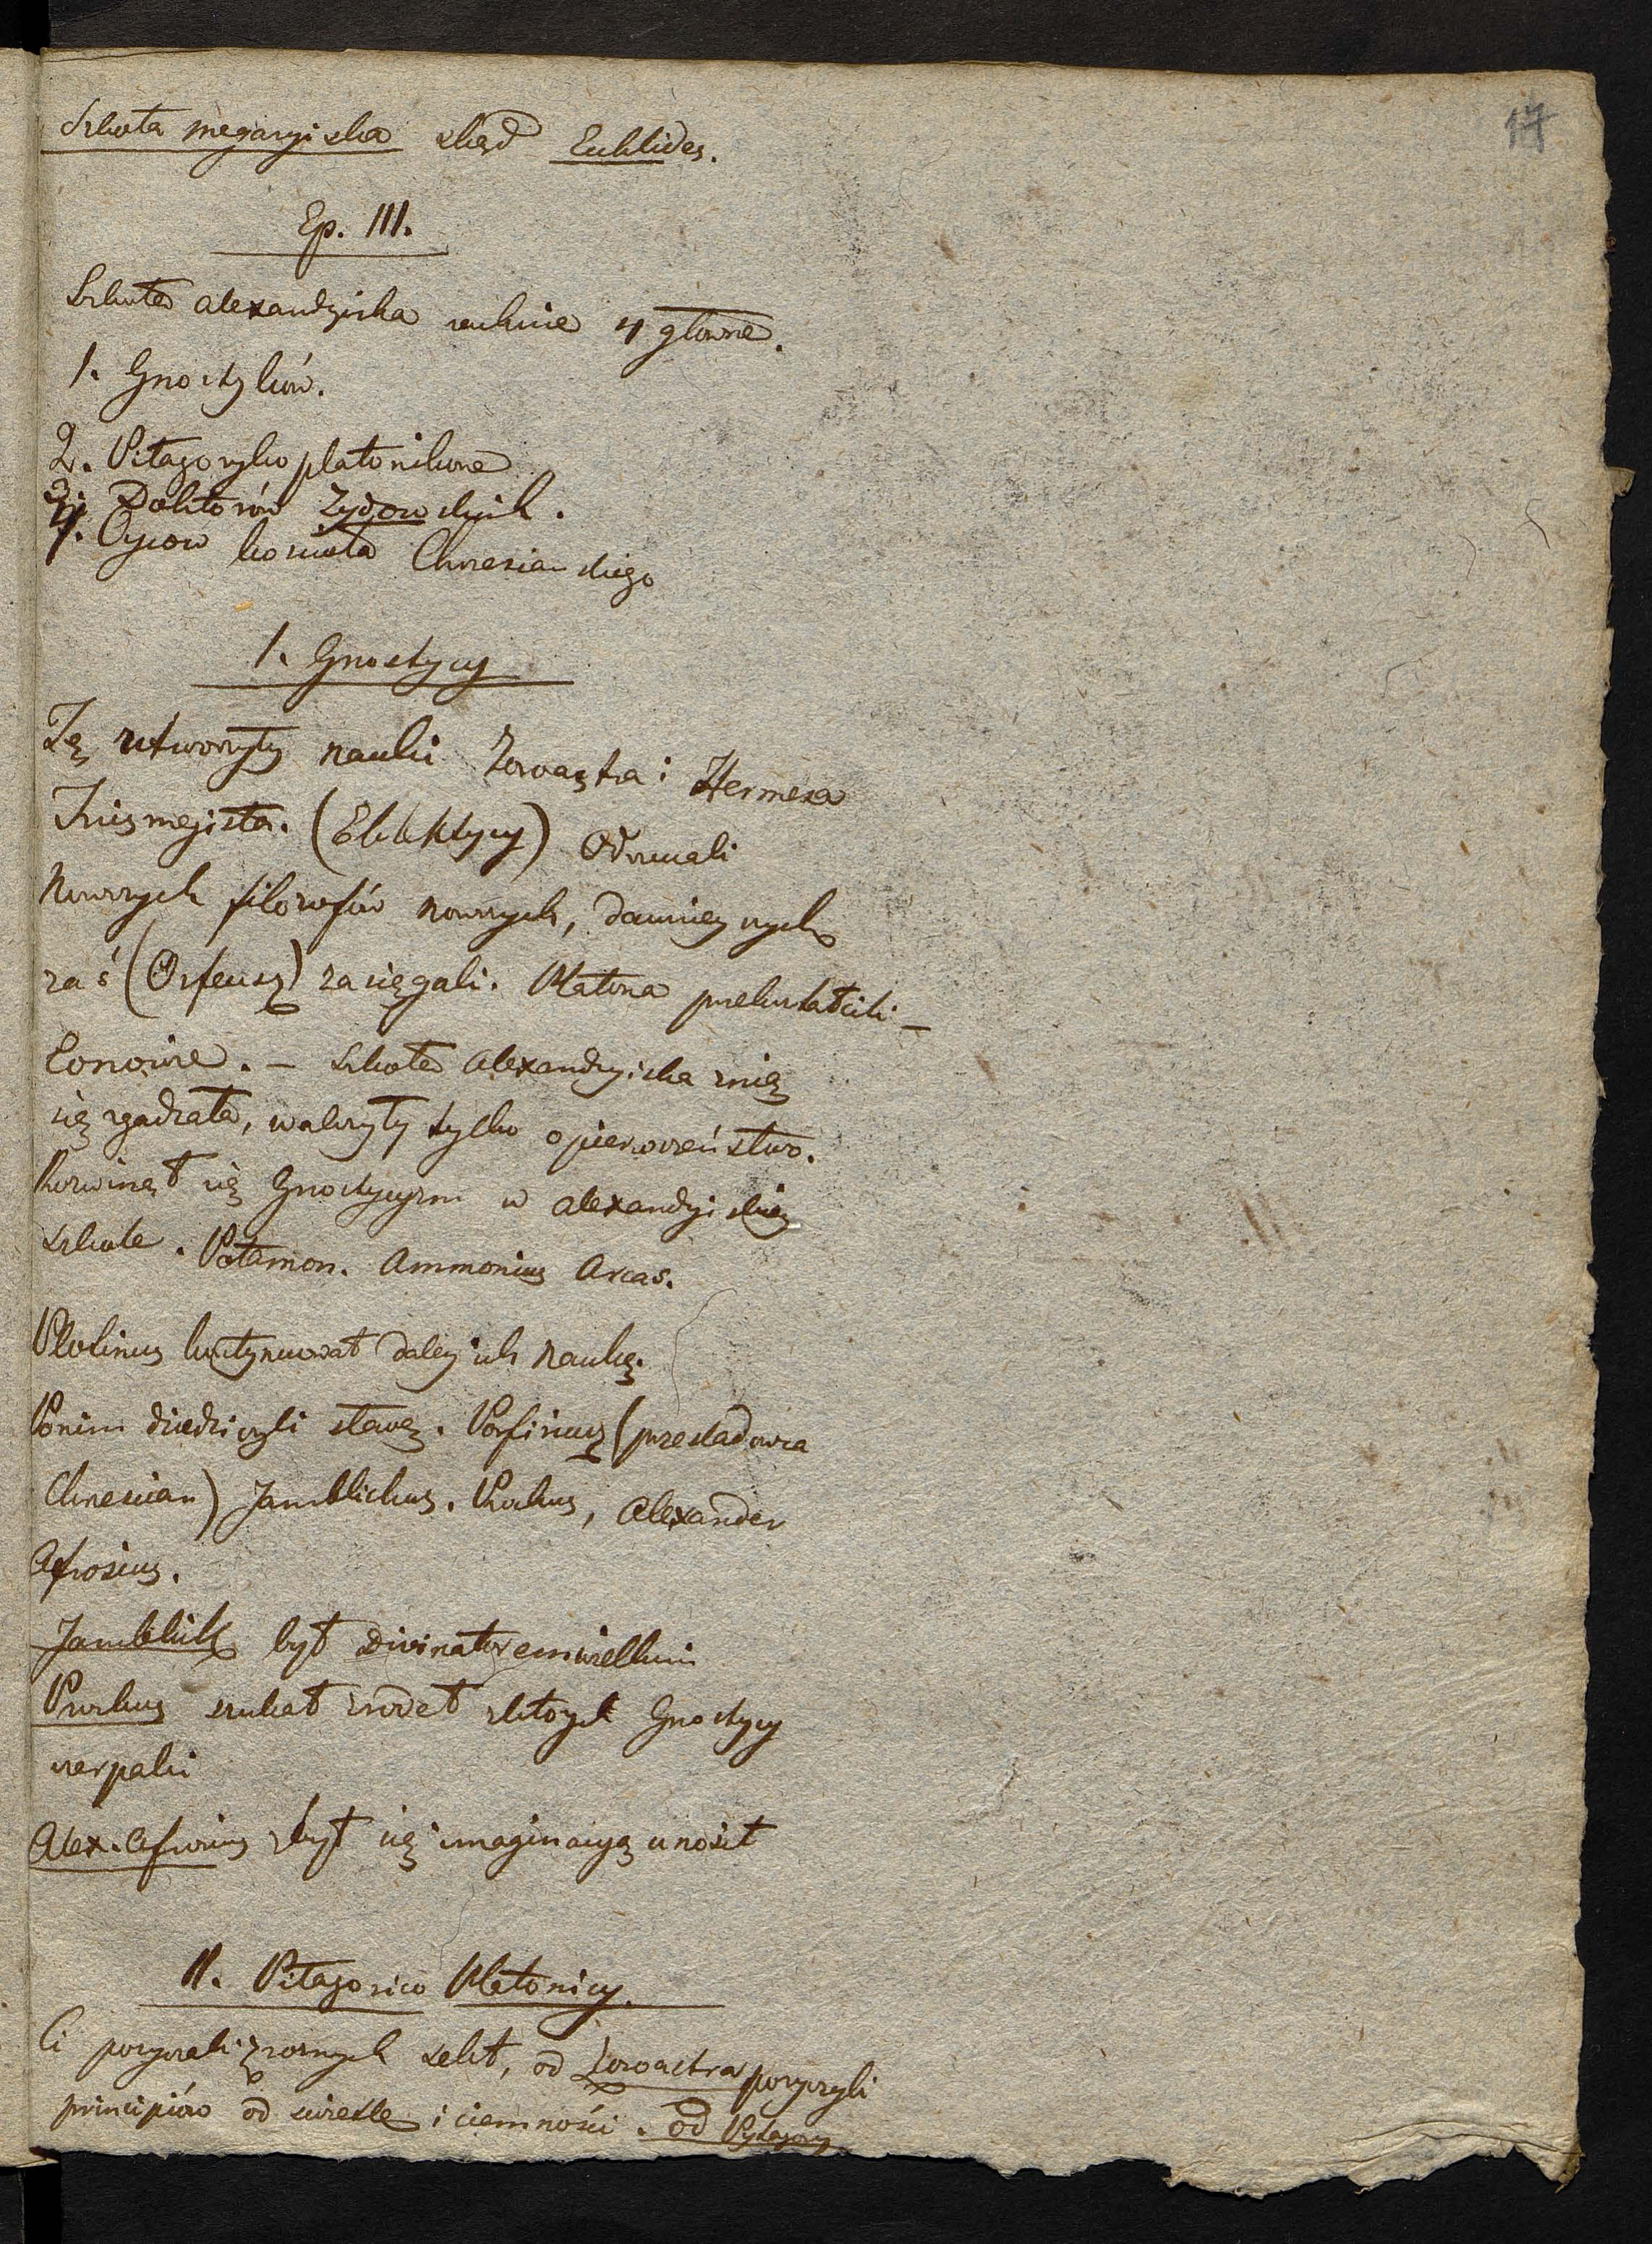 17
Szkoła megaryiska skąd Euklides.
Ep. III.
Szkoła alexandryiska 4 główne.
1. Gnostyków.
2. Pitagoryko platoników
3. Doktorów Żydowskich.
4. Oyców kościoła Chrześciańskiego
1. Gnostycy
Tę utworzyły nauki Zoroastra i Hermesa
Trismegista. (Eklektycy)
Nowszych filozofów nowszych, dawnieyszych
zaś (Orfeusz) zasięgali. Platona przekształcili –
Eonowie. – Szkoła Alexandryiska z nią
się zgadzała, walczyły tylko o pierwszeństwo.
Rozwinął się Gnostycyzm w alexandryiskiey
szkole. Potamon. Ammonius Arcas.
Plotinus kontynuował daley ich naukę.
Po nim dziedziczyli sławę. Porfirius (prześladowca
Chrześcian) Jamblichus. Proklus, Alexander
Afrosius.
Jamblich był Divinatorem wielkim
Proklus szukał źrodeł z których Gnostycy
czerpali
Alex. Afrosius zbyt się imaginacyą unosił
II. Pitagorico Platonicy.
Ci pożyczali z rożnych sekt, od Zoroastra pożyczyli
principiów od światła i ciemności. od Pytagory